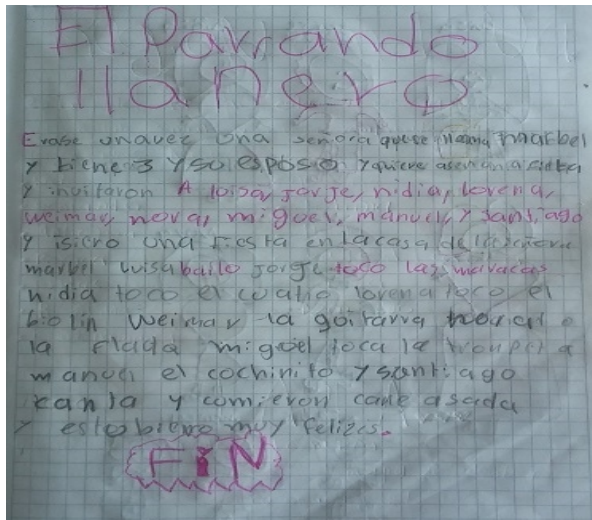 El Parrando
llanero
Erase unavez una señora quese llama marbel
y tiene 3 y so esposo y quiere aser una fiesta
y invitaron A loisa, jorje, nidia, lorena,
weimar, nora, miguel, manuel, y santiago
y isiero una fiesta en lacasa de laseñora
marbel luisa bailo jorje toco las maracas
nidia toco el cuatro lorena toco el
biolin weimar la goitarra nora
la flada miguel toca la
manuel el cochinito y santiago
canta y comieron carne asada
y estobiero muy felizes.
FIN